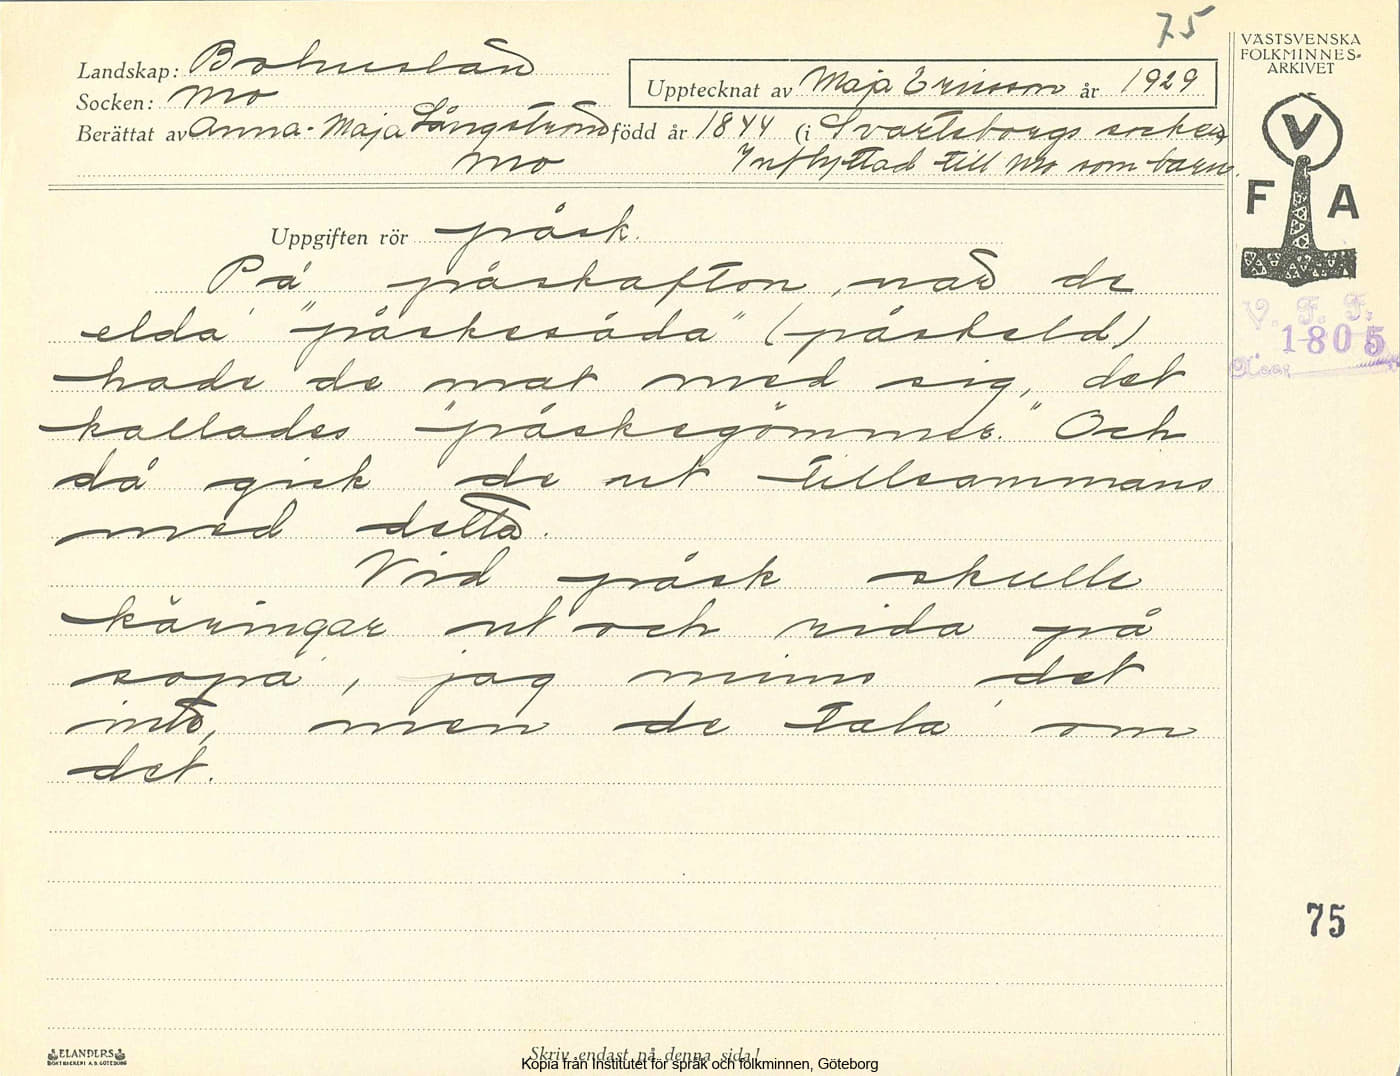 75
VÄSTSVENSKA
FOLKMINNES-
ARKIVET
Landskap: Bohuslän
Upptecknat av Maja Ericsson år 1929
Socken: Mo
Berättat av Anna-Maja Långström född år 1844 (i Svarteborgs socken,
Mo Inflyttad till Mo som barn.
V
F A
Uppgiften rör påsk.
På påskafton, när de
elda' "påskesåda" (påskeld)
hade de mat med sig, det
kallades "påskegömmer." Och
då gick de ut tillsammans
med detta.
Vid påsk skulle
käringar ut och rida på
sopa', jag minns det
inte, men de tala' om
det.
V. F. F.
1805
75
ELANDERS
BOKTRYCKERI A.B. GÖTEBORG
Skriv endast på denna sida!
Kopia från Institutet för språk och folkminnen, Göteborg